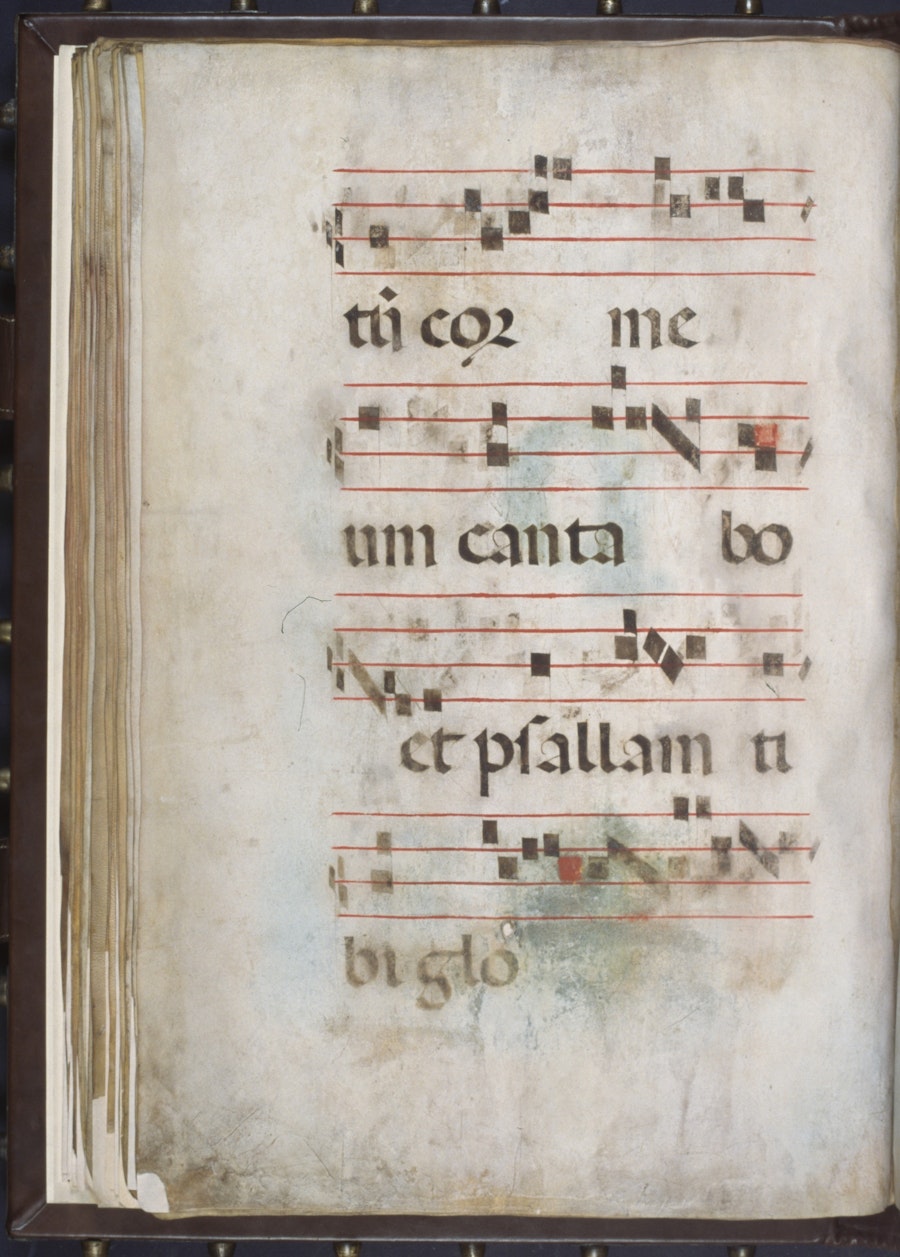 tũ cor me
um canta bo
et psallam ti
bi glo